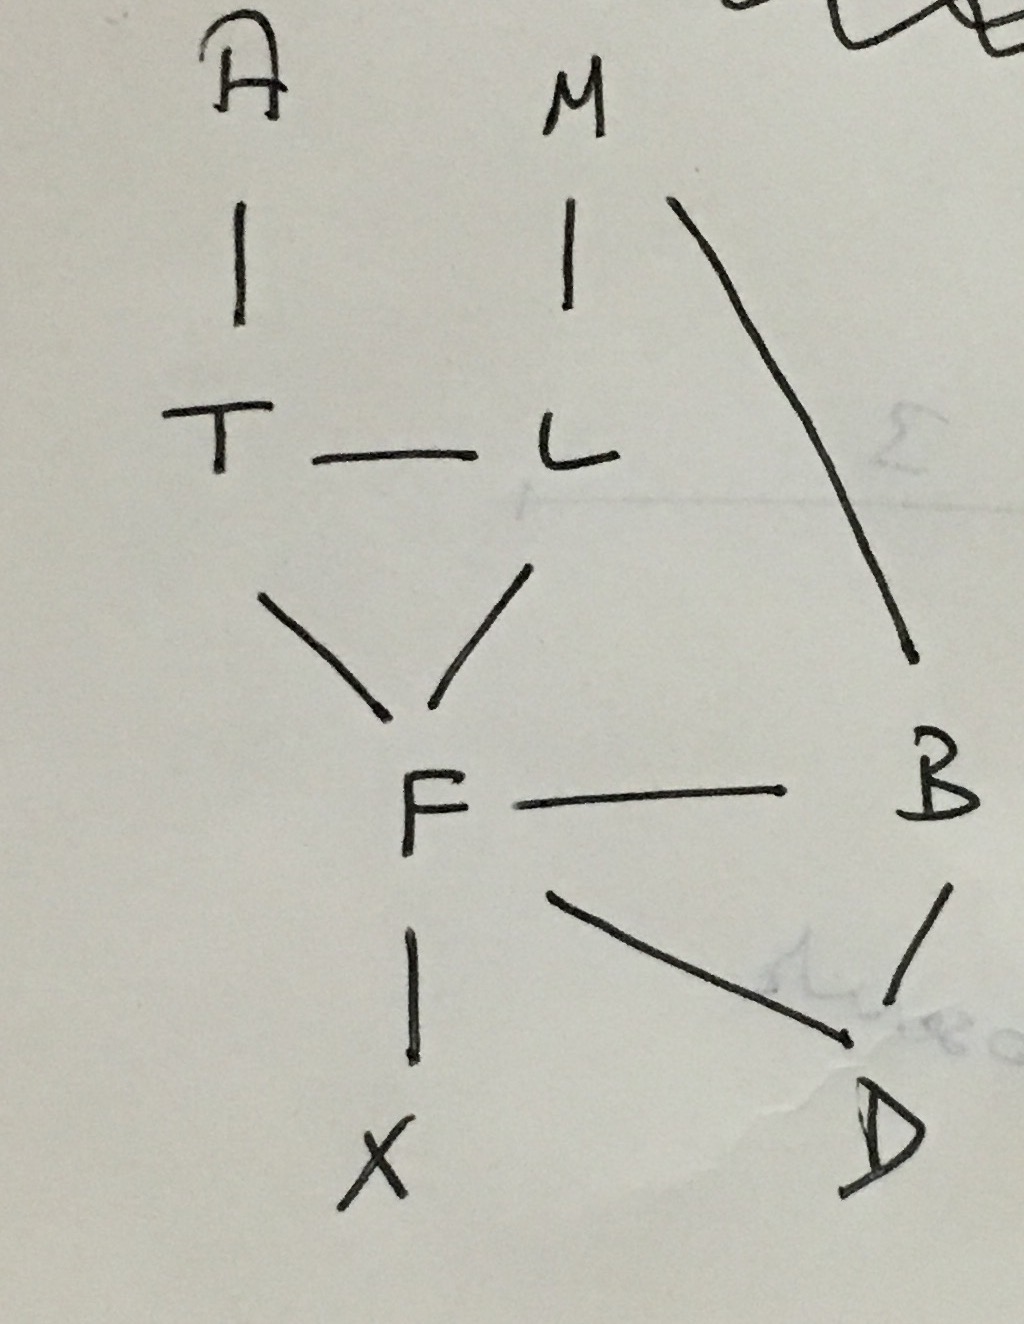 A M
T L
F B
X D